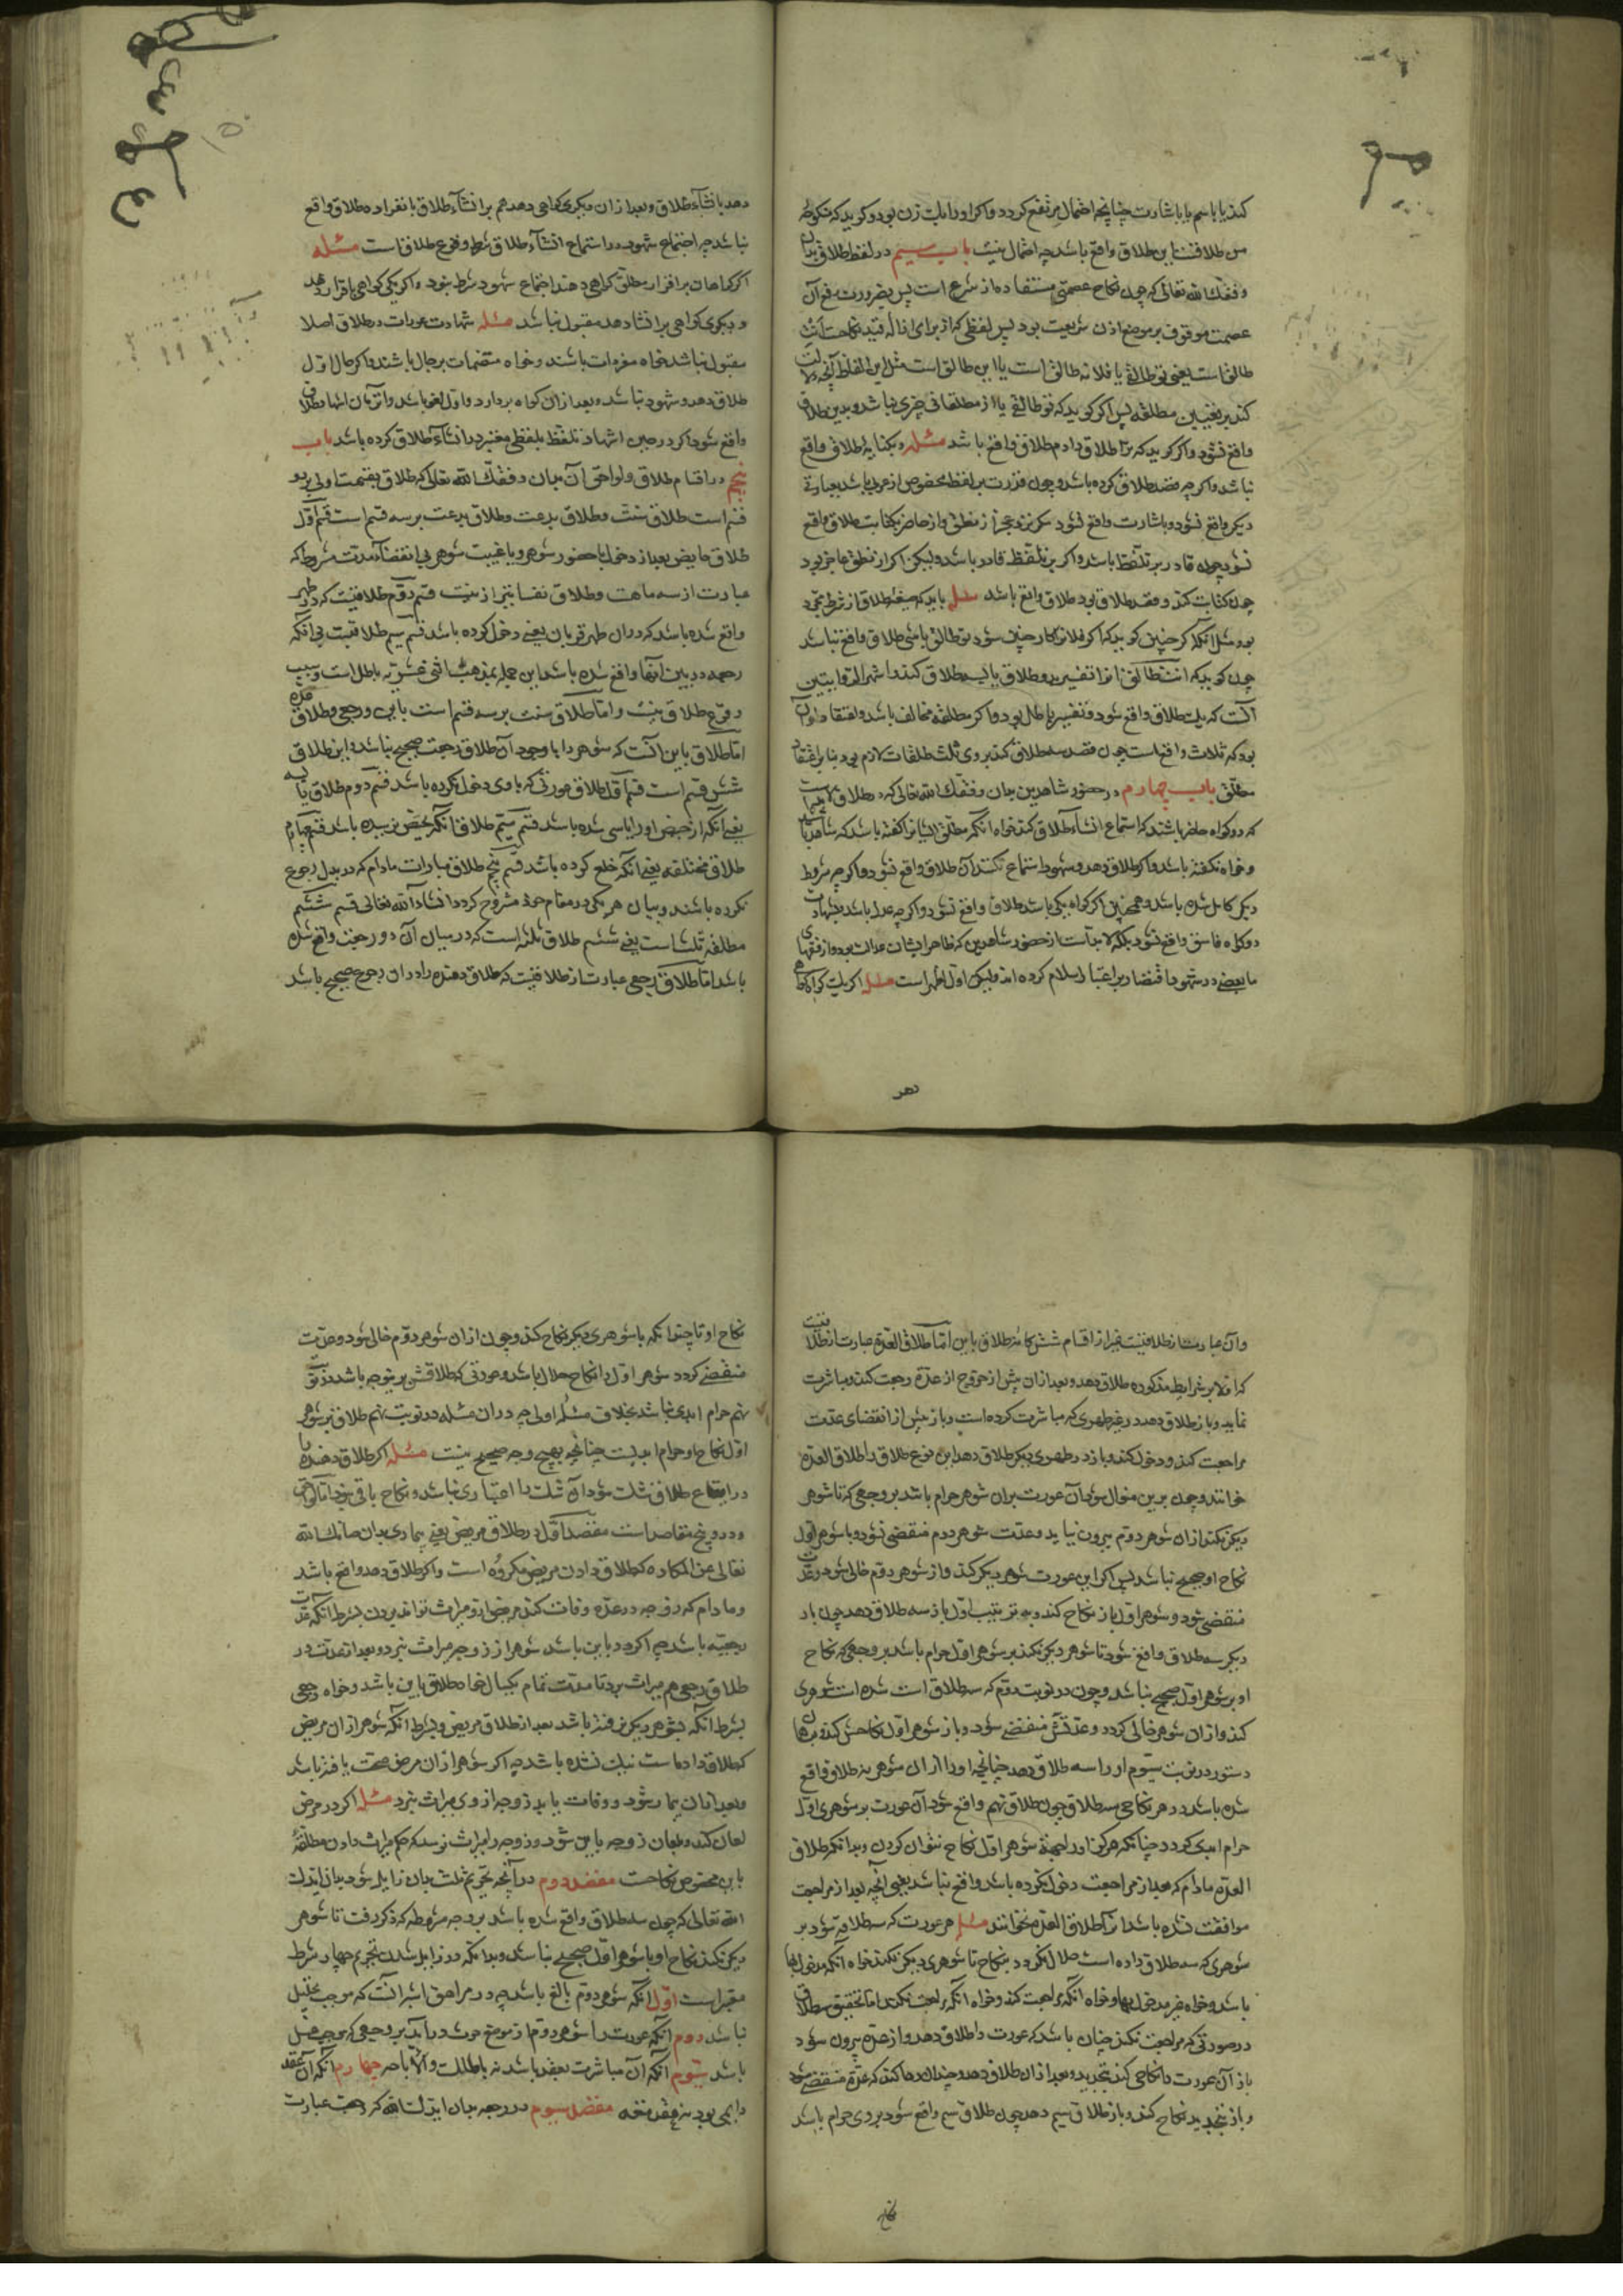 کند یا باسم یا باشارت چنانچه احتمال مرتفع کردد واکر او را یک زن بود و کوید که منکوحهٔ
من طلاقست این طلاق واقع باشد چه احتمال نیست باب سیم در لفظ طلاق بدان
وفقک الله تعالی که چون نکاح عصمتی مستفاد از شرع است پس بضرورت رفع آن
عصمت موقوف بر موضع اذن شریعت بود پس لفظی که از برای ازالهٔ قید نکاحت اَنتِ
طالق است یعنی تو طالق یا فلانه طالق است یا این طالق است مثل این الفاظ آنچه دلالت
کند بر تعیین مطلقه پس اکر کوید که تو طالقی یا از مطلقاتی چیزی نباشد و بدین طلاق
واقع نشود واکر کوید که ترا طلاق دادم طلاق واقع باشد مسئله وبکنایه طلاق واقع
نباشد واکرچه قصد طلاق کرده باشد وچون قدرت بر لفظ مخصوص از عربی باشد بعبارت
دیکر واقع نشود وباشارت واقع نشود مکر نزد عجز از نطق واز حاضر بکتابت طلاق واقع
نشود چون قادر بر تلفظ باشد واکر بر تلفظ قادر باشد ولیکن اکر از نطق عاجز بود
چون کتابت کند وقصد طلاق بود طلاق واقع باشد مسئله باید که صیغه طلاق از شرط مجرد
بود مثلا آنکه اکر چنین کوید که اکر فلان کار چنین شود تو طالق باشی طلاق واقع نباشد
چون کوید که انت طالق ثلثا تفسیر بدو طلاق یا بسه طلاق کند اشهر الروایتین
آنست که یک طلاق واقع شود وتفسیر باطل بود واکر مطلقه مخالف باشد واعتقاد او آن
بود که ثلاث واقعست چون قصد سه طلاق کند بر وی ثلث طلقات لازم بود بنا بر اعتقاد
مطلق باب چهارم در حضور شاهدین بدان وفقک الله تعالی که در طلاق لابد است
که دو کواه حاضر باشند که استماع انشاء طلاق کنند خواه آنکه مطلق ایشانرا کفته باشد که شاهد باشید
وخواه نکفته باشد واکر طلاق دهد وشهود استماع نکنند آن طلاق واقع نشود واکرچه شروط
دیکر کامل شده باشد وهمچنین اکر کواه یکی باشد طلاق واقع نشود واکرچه عدل باشد بشهادت
دو کواه فاسق واقع نشود بلکه لابد است از حضور شاهدین که ظاهر ایشان عدالت بود واز فقهای
ما بعضی در شهود اقتصار بر اعتبار اسلام کرده اند ولیکن اول اظهر است مسئله اکر یک کواه کواهی
دهد
دهد بانشآء طلاق وبعد از ان دیکری کواهی دهد هم بر انشآء طلاق بانفراده طلاق واقع
نباشد چه اجتماع شهود در استماع انشآء طلاق شرط وقوع طلاقست مسئله
اکر کواهان بر اقرار مطلق کواهی دهند اجتماع شهود شرط نبود واکر یکی کواهی باقرار دهد
ودیکری کواهی بر انشا دهد مقبول نباشد مسئله شهادت عورات در طلاق اصلا
مقبول نباشد خواه منفردات باشند وخواه منضمات برجال باشند واکر حال اول
طلاق دهد وشهود نباشد وبعد از ان کواه بر دارد واول لغو باشد واز زمان اشهاد طلاق
واقع شود اکر در حین اشهاد تلفظ بلفظی معتبر در انشآء طلاق کرده باشد باب
پنجم در اقسام طلاق ولواحق آن بدان وفقک الله تعالی که طلاق بقسمت اولی بر دو
قسم است طلاق سنت وطلاق بدعت وطلاق بدعت بر سه قسم است قسم اول
طلاق حایض بعد از دخول با حضور شوهر ویا غیبت شوهر بی انقضاء مدت مشروط که
عبارت از سه ماهست وطلاق نفسا نیز از نیست قسم دوم طلاقیست که در طهر
واقع شده باشد که در ان طهر قربان یعنی دخول کرده باشد قسم سیم طلاق ثلثست بی آنکه
رجعه در بین آنها واقع شده باشد این جمله بمذهب اثنی عشریه باطل است وسبب
وقوع طلاق نیست واما طلاق سنت بر سه قسم است باین ورجعی وطلاق عده
اما طلاق باین آنست که شوهر را با وجود آن طلاق رجعت صحیح نباشد واین طلاق
شش قسم است قسم اول طلاق عورتی که با وی دخول نکرده باشد قسم دوم طلاق یایسه
یعنی آنکه از حیض او را یاسی شده باشد قسم سیم طلاق آنکه بحیض نرسیده باشد قسم چهارم
طلاق مختلعه یعنی آنکه خلع کرده باشد قسم پنجم طلاق مبارات مادام که در بدل رجوع
نکرده باشند وبیان هر یکی در مقام خود مشروح کردد انشاء الله تعالی قسم ششم
مطلقه ثلث است یعنی ششم طلاق ثلثه است که در میان آن دو رجعت واقع شده
باشد اما طلاق رجعی عبارت از طلاقیست که طلاق دهنده را در ان رجوع صحیح باشد
وآن عبارت از طلاقیست غیر از اقسام شش کانهٔ طلاق باین اما طلاق العده عبارت از طلاقیست
که اولا بر شرایط مذکوره طلاق دهد وبعد از ان پیش از خروج از عده رجعت کند ومباشرت
نماید وباز طلاق دهد در غیر طهری که مباشرت کرده است وباز پیش از انقضای عدت
مراجعت کند ودخول کند وباز در طهری دیکر طلاق دهد این نوع طلاق را طلاق العده
خوانند وچون برین منوال شود آن عورت بران شوهر حرام باشد بر وجهی که تا شوهر
دیکر نکند از ان شوهر دوم بیرون نیاید وعدت شوهر دوم منقضی نشود با شوهر اول
نکاح او صحیح نباشد پس اکر این عورت شوهر دیکر کند واز شوهر دوم خالی شود وعدت
منقضی شود وشوهر اول باز نکاح کند وبه ترتیب اول باز سه طلاق دهد چون بار
دیکر سه طلاق واقع شود تا شوهر دیکر نکند بر شوهر اول حرام باشد بر وجهی که نکاح
او بر شوهر اول صحیح نباشد وچون در نوبت دوم که سه طلاق است شده است شوهری
کند واز ان شوهر خالی کردد وعدتش منقضی شود وباز شوهر اول نکاحش کند وبهمان
دستور در نوبت سیوم او را سه طلاق دهد چنانچه او را از ان شوهر نه طلاق واقع
شده باشد در هر نکاحی سه طلاق چون طلاق نهم واقع شود آن عورت بر شوهر اول
حرام ابدی کردد چنانکه هرکز او را بجهة شوهر اول نکاح نتوان کردن وبدانکه طلاق
العده مادام که بعد از مراجعت دخول نکرده باشد واقع نباشد یعنی آنچه بعد از مراجعت
مواقعت نشده باشد آنرا طلاق العده نخوانند مسئله هر عورت که سه طلاقه شود بر
شوهری که سه طلاق داده است حلال نکردد بنکاح تا شوهری دیکر نکند خواه آنکه مدخول بها
باشد وخواه غیر مدخول بها وخواه آنکه مراجعت کند وخواه آنکه مراجعت نکند اما تحقیق سه طلاق
در صورتی که مراجعت نکند چنان باشد که عورت را طلاق دهد واز عده بیرون شود
باز آن عورت را نکاحی کند بتجدید وبعد از ان طلاق دهد وچندان رها کند که عده منقضی شود
وباز بتجدید نکاح کند وباز طلاق سیم دهد چون طلاق سیم واقع شود بر وی حرام باشد
نکاح
نکاح او تا چندانکه با شوهری دیکر نکاح کند وچون از ان شوهر دوم خالی شود وعدت
منقضی کردد شوهر اول را نکاح حلال باشد وعورتی که طلاقش برینوجه باشد در نوبت
نهم حرام ابدی نباشد بخلاف مسئله اولی چه در ان مسئله در نوبت نهم طلاق بر شوهر
اول نکاح او حرام ابدیست چنانچه بهیچ وجه صحیح نیست مسئله اکر طلاق دهنده را
در ایقاع طلاق شک شود آن شک را اعتباری نباشد ونکاح باقی بود اما لواحق
ودرو پنج مقاصد است مقصد اول در طلاق مریض یعنی بیماری بدان صانک الله
تعالی عن المکاره که طلاق دادن مریض مکروه است واکر طلاق دهد واقع باشد
ومادام که زوجه در عده وفات کند مریض ازو میراث تواند بردن بشرط آنکه عدت
رجعیه باشد چه اکر در باین باشد شوهر از زوجه میراث نبرد وبعد از عدت در
طلاق رجعی هم میراث برد تا مدت تمام یکسال خواه طلاق باین باشد وخواه رجعی
بشرط آنکه بشوهر دیکر نرفته باشد بعد از طلاق مریض وبشرط آنکه شوهر از ان مریض
که طلاق داده است نیک نشده باشد چه اکر شوهر از ان مرض صحت یافته باشد
وبعد از ان بیمار شود ووفات یابد زوجه از وی میراث نبرد مسئله اکر در مرض
لعان کند وبلعان زوجه باین شود وزوجه را میراث نرسد که حکم میراث دادن مطلقهٔ
باین مخصوص نکاحست مقصد دوم در آنچه تحریم ثلث بدان زایل شود بدان ایدک
الله تعالی که چون سه طلاق واقع شده باشد بر وجه مشروطه که ذکر رفت تا شوهر
دیکر نکند نکاح او با شوهر اول صحیح نباشد وبدانکه در زایل شدن تحریم چهار شرط
معتبر است اول آنکه شوهر دوم بالغ باشد چه در مراهق اشبه آنست که موجب تحلیل
نباشد دوم آنکه عورت را شوهر دوم از موضع حرث در آید بر وجهی که موجب غسل
باشد سیوم آنکه آن مباشرت بعقد باشد نه بملکیت والا باحه چهارم آنکه آن عقد
دایمی بود نه عقد متعه مقصد سیوم در رجعه بدان ایدک الله که رجعت عبارت